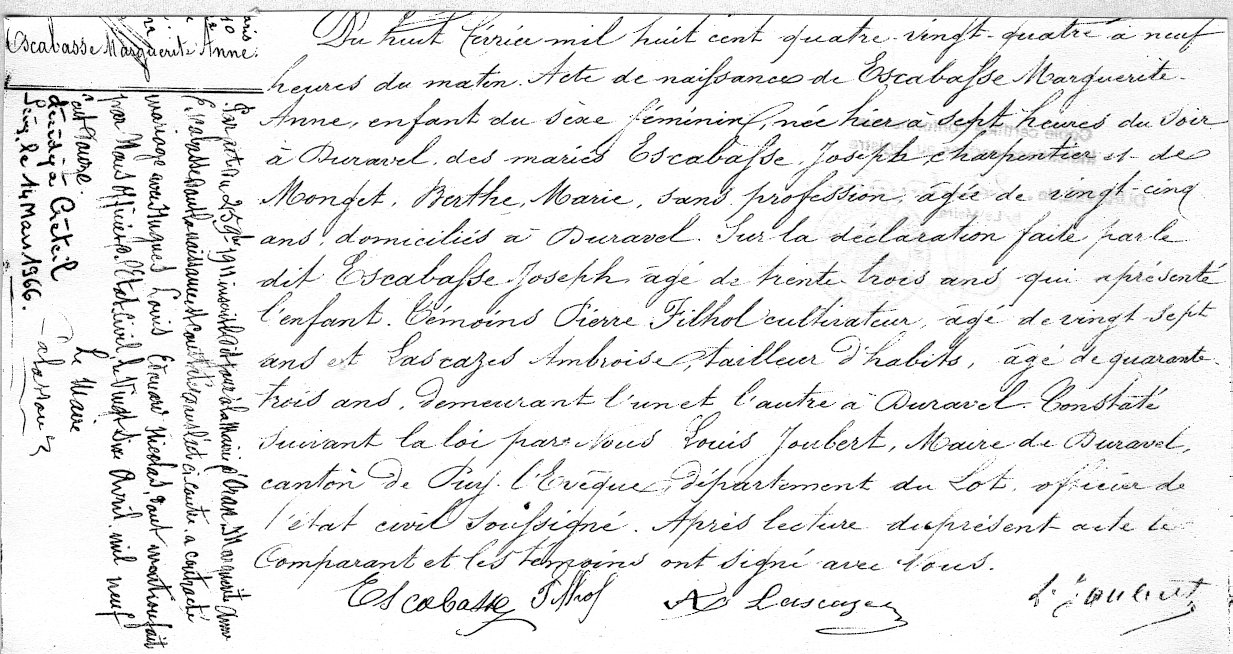 Escabasse Marguerite Anne.
Du huit février mil huit cent quatre-vingt-quatre à neuf
heures du matin. Acte de naissance de Escabasse Marguerite-
Anne, enfant du sexe féminin, née hier à sept heures du soir
à Duravel, des mariés Escabasse, Joseph charpentier et de
Monget, Berthe, Marie, sans profession, âgée de vingt-cinq
ans, domiciliés à Duravel. Sur la déclaration faite par le
dit Escabasse Joseph âgé de trente trois ans qui a présenté
l'enfant. Témoins Pierre Filhol cultivateur, âgé de vingt sept
ans et Lascazes Ambroise, tailleur d'habits, âgé de quarante-
trois ans, demeurant l'un et l'autre à Duravel. Constaté
suivant la loi par Nous Louis Joubert, Maire de Duravel,
canton de Puy-l'Evêque, département du Lot, officier de
l'état civil soussigné. Après lecture du présent acte le
Comparant et les témoins ont signé avec Nous.
Escabasse Filhol A Lascazes Ls Joubert
Par du 25 9bre 1911 à la Mairie d'Oran Marguerite Anne
Escabasse dont la naissance est ci contre a contracté
mariage avec Hugues Louis Nicolas, dont mention fait
par Nous Officier de l'Etat Civil le Vingt Avril mil neuf
cent
Le Maire
décédée à Créteil
le 14 Mars 1966.